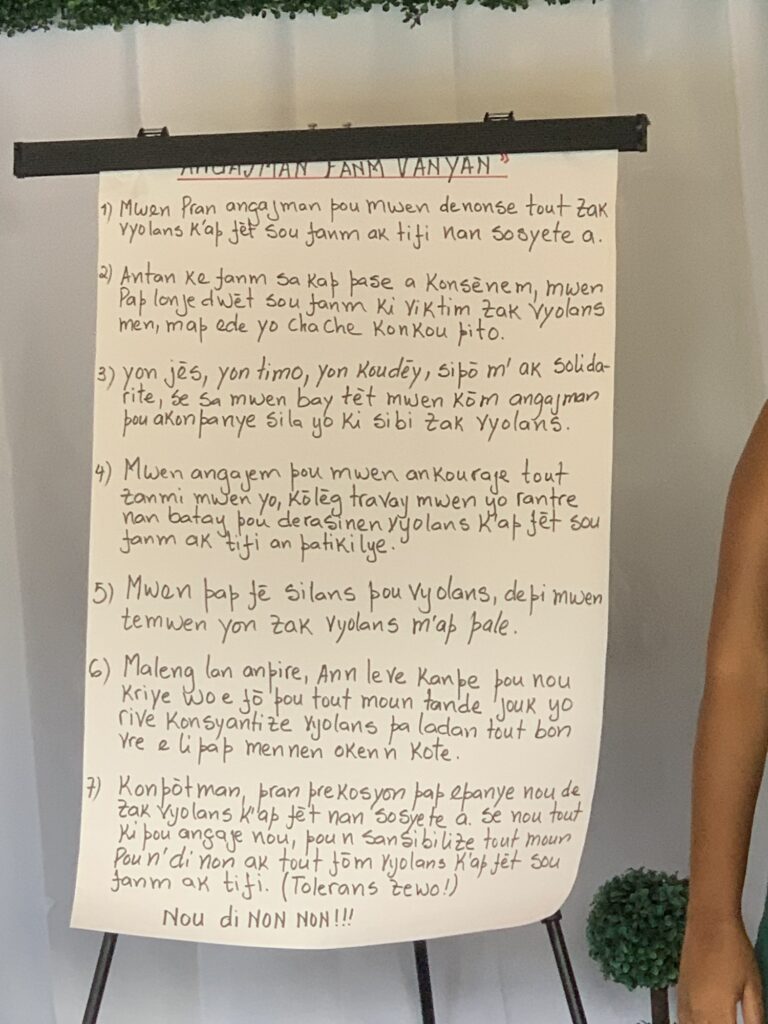 ANGAJMAN FANM VANYAN"
1) Mwen Pran angajman pou mwen denonse tout zak
vyolans k'ap fèt sou fanm ak tifi nan sosyete a.
2) Antan ke fanm sa kap pase a Konsènem, mwen
Pap lonje dwèt sou fanm ki viktim zak vyolans
men, map ede yo chache konkou pito.
3) yon jès, yon timo, yon koudèy, sipò m' ak solida-
rite, se sa mwen bay tèt mwen kòm angajman
pou akonpanye sila yo ki sibi zak vyolans.
4) Mwen angajem pou mwen ankouraje tout
zanmi mwen yo, kòlèg travay mwen yo rantre
nan batay pou derasinen vyolans k'ap fèt sou
fanm ak tifi an patikilye.
5) Mwen pap fè silans pou vyolans, depi mwen
temwen yon zak vyolans m'ap pale.
6) Maleng lan anpire, Ann leve kanpe pou nou
kriye wo e fò pou tout moun tande jouk yo
rive konsyantize vyolans pa ladan tout bon
vre e li pap mennen okenn kote.
7) Konpòtman, pran prekosyon pap epanye nou de
zak vyolans k'ap fèt nan sosyete a. se nou tout
ki pou angaje nou, pou n sansibilize tout moun
Pou n' di non ak tout fòm vyolans k'ap fèt sou
fanm ak tifi. (Tolerans zewo!)
Nou di NON NON!!!